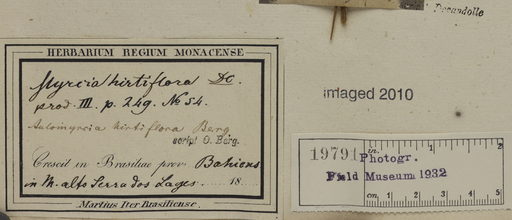 Decandolle
HERBARIUM REGIUM MONACENSE
Myrcia hirtiflora DC.
prod. III. p. 249. No 54.
Automyrcia hirtiflora Berg
script O. Berg.
Crescit in Brasiliae prov. Bahiens
in M. alto Serra dos Lages. 18
Martius Iter Brasiliense.
imaged 2010
19791
in. 1 2
Photogr.
Field Museum 1932
cm. 1 2 3 4 5